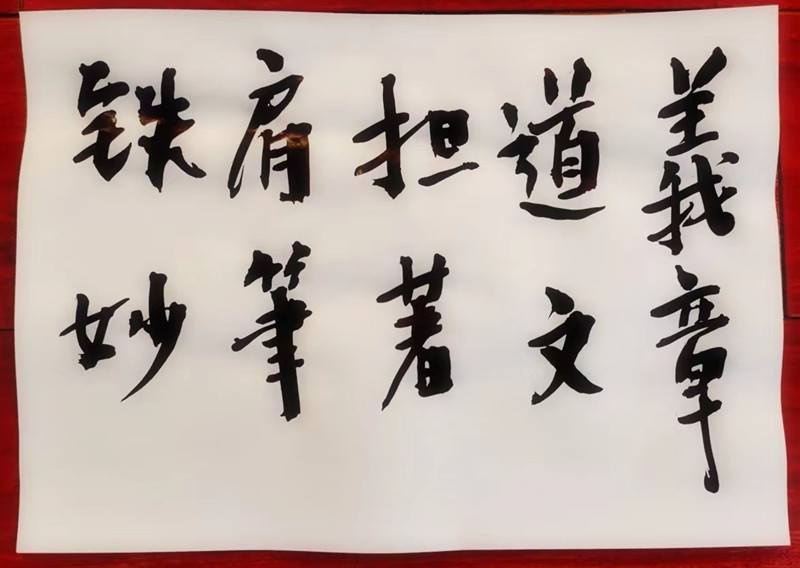 铁肩担道義
妙筆著文章